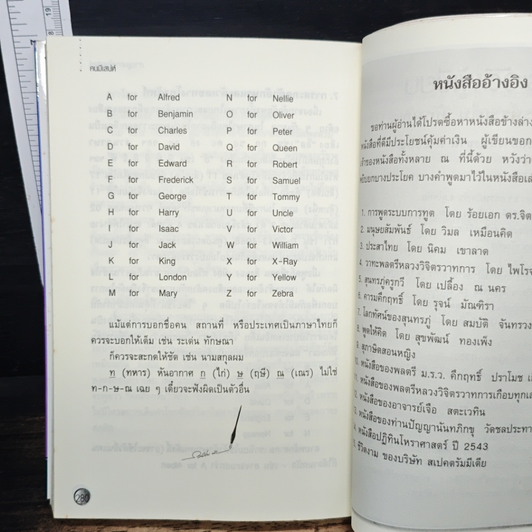 คนมีเสน่ห์
A for Alfred N for Nellie
B for Benjamin O for Oliver
C for Charles P for Peter
D for David Q for Queen
E for Edward R for Robert
F for Frederick S for Samuel
G for George T for Tommy
H for Harry U for Uncle
I for Isaac V for Victor
J for Jack W for William
K for King X for X-Ray
L for London Y for Yellow
M for Mary Z for Zebra
แม้แต่การบอกชื่อคน สถานที่ หรือประเทศเป็นภาษาไทยก็
ควรจะบอกให้เต็ม เช่น ระเด่น ทักษณา
ก็ควรจะสะกดให้ชัด เช่น นามสกุลผม
ท (ทหาร) หันอากาศ ก (ไก่) ษ (ฤษี) ณ (เณร) ไม่ใช่
ท-ก-ษ-ณ เฉย ๆ เดี๋ยวจะฟังผิดเป็นตัวอื่น
หนังสืออ้างอิง
ขอท่านผู้อ่านได้โปรดซื้อหาหนังสือข้างล่าง
หนังสือที่ดีมีประโยชน์คุ้มค่าเงิน ผู้เขียนขอก
เจ้าของหนังสือทั้งหลาย ณ ที่นี้ด้วย หวังว่า
หยิบยกบางประโยค บางคำพูดมาไว้ในหนังสือเล่
1. การพูดระบบการทูต โดย ร้อยเอก ดร.จิต
2. มนุษยสัมพันธ์ โดย วิมล เหมือนคิด
3. ประสาไทย โดย นิคม เขาลาด
4. วาทะพลตรีหลวงวิจิตรวาทการ โดย ไพโร
5. สุนทรภู่ครูกวี โดย เปลื้อง ณ นคร
6. คารมคึกฤทธิ์ โดย รุจน์ มัณฑิรา
7. โลกทัศน์ของสุนทรภู่ โดย สมบัติ จันทรวง
8. พูดให้คิด โดย สุขพัฒน์ ทองเพ้ง
9. สุภาษิตสอนหญิง
10. หนังสือของพลตรี ม.ร.ว. คึกฤทธิ์ ปราโมช
11. หนังสือของพลตรีหลวงวิจิตรวาทการเกือบทุกเล
12. หนังสือของอาจารย์เจือ สตะเวทิน
13. หนังสือของท่านปัญญานันทภิกขุ วัดชลประทา
14. หนังสือปฏิทินโหราศาสตร์ ปี 2543
15. ชีวิตงาม ของบริษัท สเปคตรัมมีเดีย